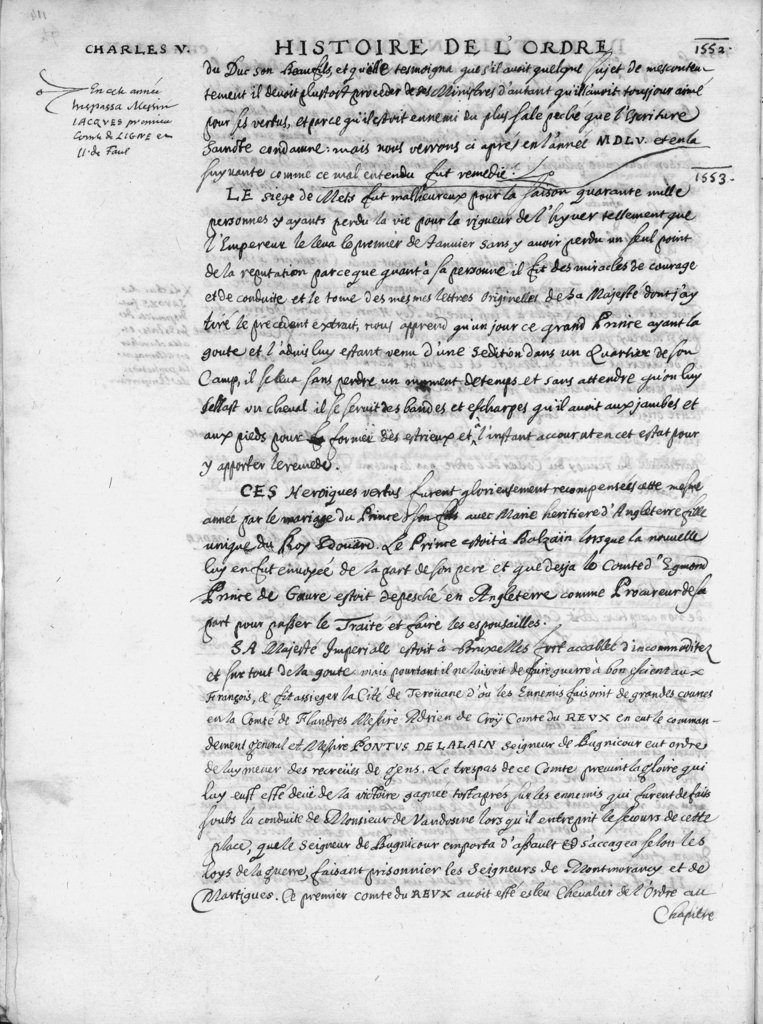 CHARLES V. HISTOIRE DE L'ORDRE 1552.
du Duc son Beaufils, et qu'elle tesmoigna que s'il avoit quelque sujet de mesconten-
tement il devoit plustost proceder de ses Ministres d'autant qu'il l'avoit tousjour aimé
pour ses vertus, et parce qu'il estoit ennemi du plus sale peché que l'Escriture
Saincte condamne: mais nous verrons ci aprés en l'année MDLV. et en la
suyvante comme ce mal entendu fut remedié.
En cete année
trespassa Messire
IACQVES premier
Comte de LIGNE en
1553.
LE siege de Mets fut malheureux pour la saison quarante mille
personnes y ayants perdu la vie pour la rigueur de l'hyver tellement que
l'Empereur le leva le premier de Janvier sans y avoir perdu un seul point
de la reputation parceque quant à sa personne il fit des miracles de courage
et de conduite et le tome des mesmes lettres originelles de Sa Majesté dont j'ay
tiré le precedent extrait, nous apprend qu'un jour ce grand Prince ayant la
goute et l'aduis luy estant venu d'une sedition dans un Quartier de son
Camp, il se leva sans perdre un moment de temps et sans attendre qu'on luy
sellast un cheval il se servit des bandes et escharpes qu'il avoit aux jambes et
aux pieds pour former des estrieux et l'instant accourut en cet estat pour
y apporter le remede.
CES Heroiques vertus furent glorieusement recompensées cette mesme
année par le mariage du Prince son fils avec Marie heritiere d'Angleterre fille
unique du Roy Edouard. Le Prince estoit à Balzain lorsque la nouvelle
luy en fut envoyée de la part de son pere et que desja le Comte d'Egmond
Prince de Gavre estoit depesché en Angleterre comme Procureur de sa
part pour passer le Traité et faire les espousailles.
SA Majesté Imperiale estoit à Bruxelles fort accablée d'incommoditez
et sur tout de la goute mais pourtant il ne laisoit de faire guerre à bon escient aux
François, & fit assieger la Cité de Terouane d'où les Ennemis faisoint de grandes courses
en la Comté de Flandres Messire Adrien de Croÿ Comte du REUX en eut le comman-
dement general et Messire PONTVS DE LALAIN Seigneur de Bugnicour eut ordre
de luy mener des recreües de gens. Le trespas de ce Comte prevint la gloire qui
luy eust esté deüe de la victoire gagnee tost apres sur les ennemis qui furent defaits
soubs la conduite de Monsieur de Vandosme lors qu'il entreprit le secours de cette
place, que le Seigneur de Bugnicour emporta d'assault et saccagea selon les
loys de la guerre, faisant prisonnier les Seigneurs de Montmorancy et de
Martigues. Ce premier comte du REVX avoit esté esleu Chevalier de l'Ordre au
Chapitre